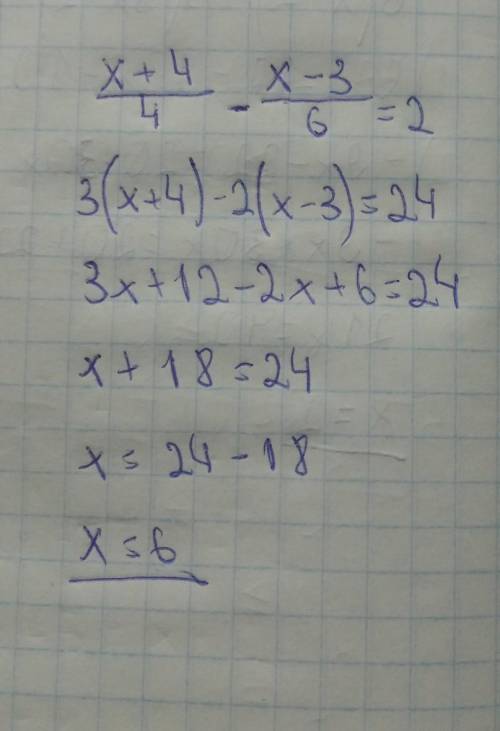 (x + 4)/4 - (x - 3)/6 = 2
3(x+4) - 2(x-3) = 24
3x + 12 - 2x + 6 = 24
x + 18 = 24
x = 24 - 18
x = 6